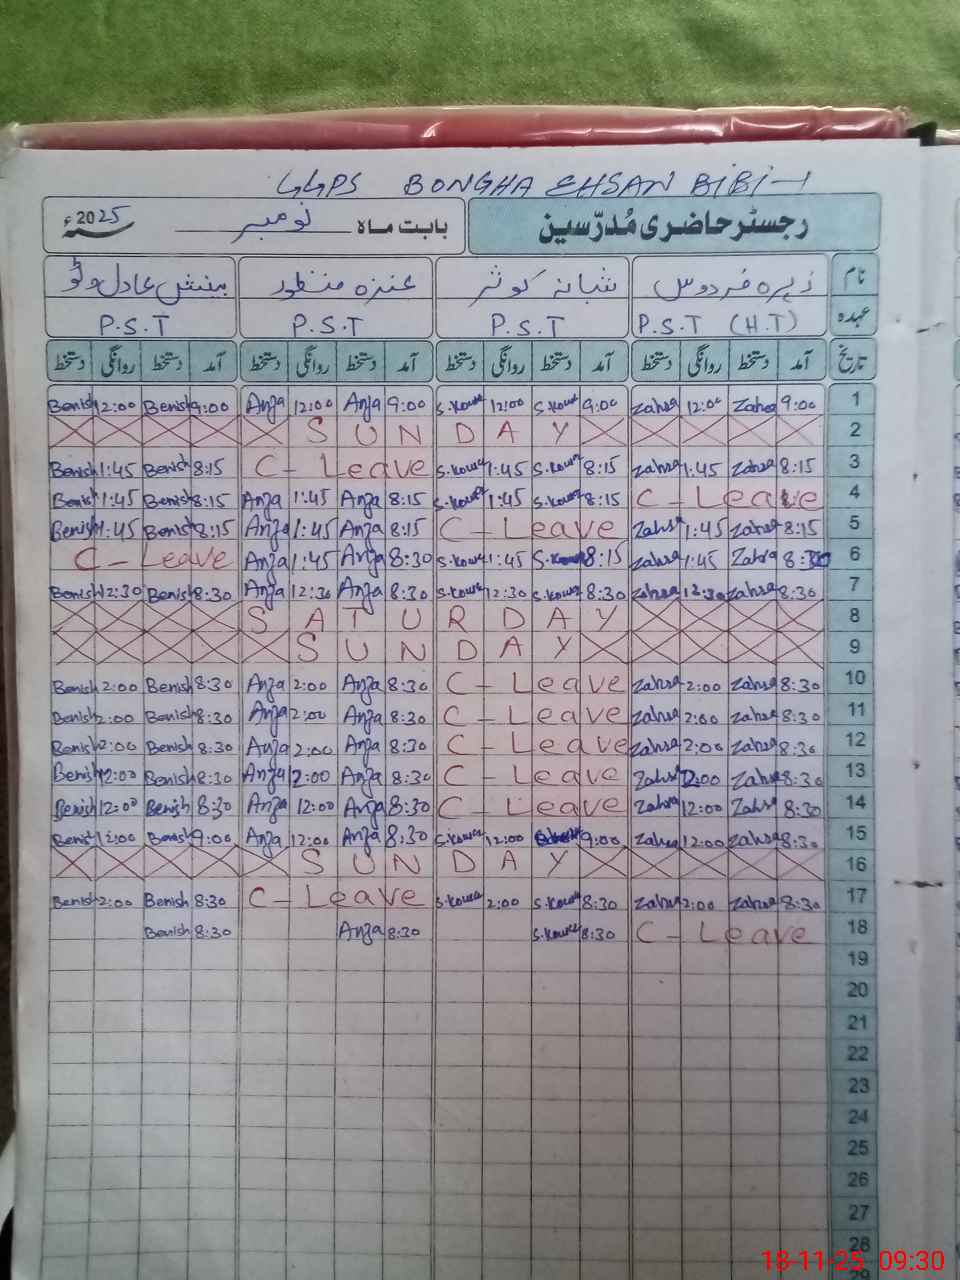 GGPS BONGHA EHSAN BIBI-1
رجسٹر حاضری مُدرّسین بابت ماہ نومبر 2025ء
نام زہرہ فردوس شبانہ کوثر عنزہ منظور بینش عادل وٹو
عہدہ P.S.T (H.T) P.S.T P.S.T P.S.T
تاریخ آمد دستخط روانگی دستخط آمد دستخط روانگی دستخط آمد دستخط روانگی دستخط آمد دستخط روانگی دستخط
Benish 12:00 Benish 9:00 Anza 12:00 Anza 9:00 S.Kousr 12:00 S.Kousr 9:00 Zahra 12:00 Zahra 9:00 1
SUNDAY 2
Benish 1:45 Benish 8:15 C-Leave S.Kousr 1:45 S.Kousr 8:15 Zahra 1:45 Zahra 8:15 3
Benish 1:45 Benish 8:15 Anza 1:45 Anza 8:15 S.Kousr 1:45 S.Kousr 8:15 C-Leave 4
Benish 1:45 Benish 8:15 Anza 1:45 Anza 8:15 C-Leave Zahra 1:45 Zahra 8:15 5
C-Leave Anza 1:45 Anza 8:30 S.Kousr 1:45 S.Kousr 8:15 Zahra 1:45 Zahra 8:30 6
Benish 12:30 Benish 8:30 Anza 12:30 Anza 8:30 S.Kousr 12:30 S.Kousr 8:30 Zahra 12:30 Zahra 8:30 7
SATURDAY 8
SUNDAY 9
Benish 2:00 Benish 8:30 Anza 2:00 Anza 8:30 C-Leave Zahra 2:00 Zahra 8:30 10
Benish 2:00 Benish 8:30 Anza 2:00 Anza 8:30 C-Leave Zahra 2:00 Zahra 8:30 11
Benish 2:00 Benish 8:30 Anza 2:00 Anza 8:30 C-Leave Zahra 2:00 Zahra 8:30 12
Benish 2:00 Benish 8:30 Anza 2:00 Anza 8:30 C-Leave Zahra 2:00 Zahra 8:30 13
Benish 12:00 Benish 8:30 Anza 12:00 Anza 8:30 C-Leave Zahra 12:00 Zahra 8:30 14
Benish 12:00 Benish 9:00 Anza 12:00 Anza 8:30 S.Kousr 12:00 9:00 Zahra 12:00 Zahra 8:30 15
SUNDAY 16
Benish 2:00 Benish 8:30 C-Leave S.Kousr 2:00 S.Kousr 8:30 Zahra 2:00 Zahra 8:30 17
Benish 8:30 Anza 8:30 S.Kousr 8:30 C-Leave 18
19
20
21
22
23
24
25
26
27
28
29
18-11-25 09:30